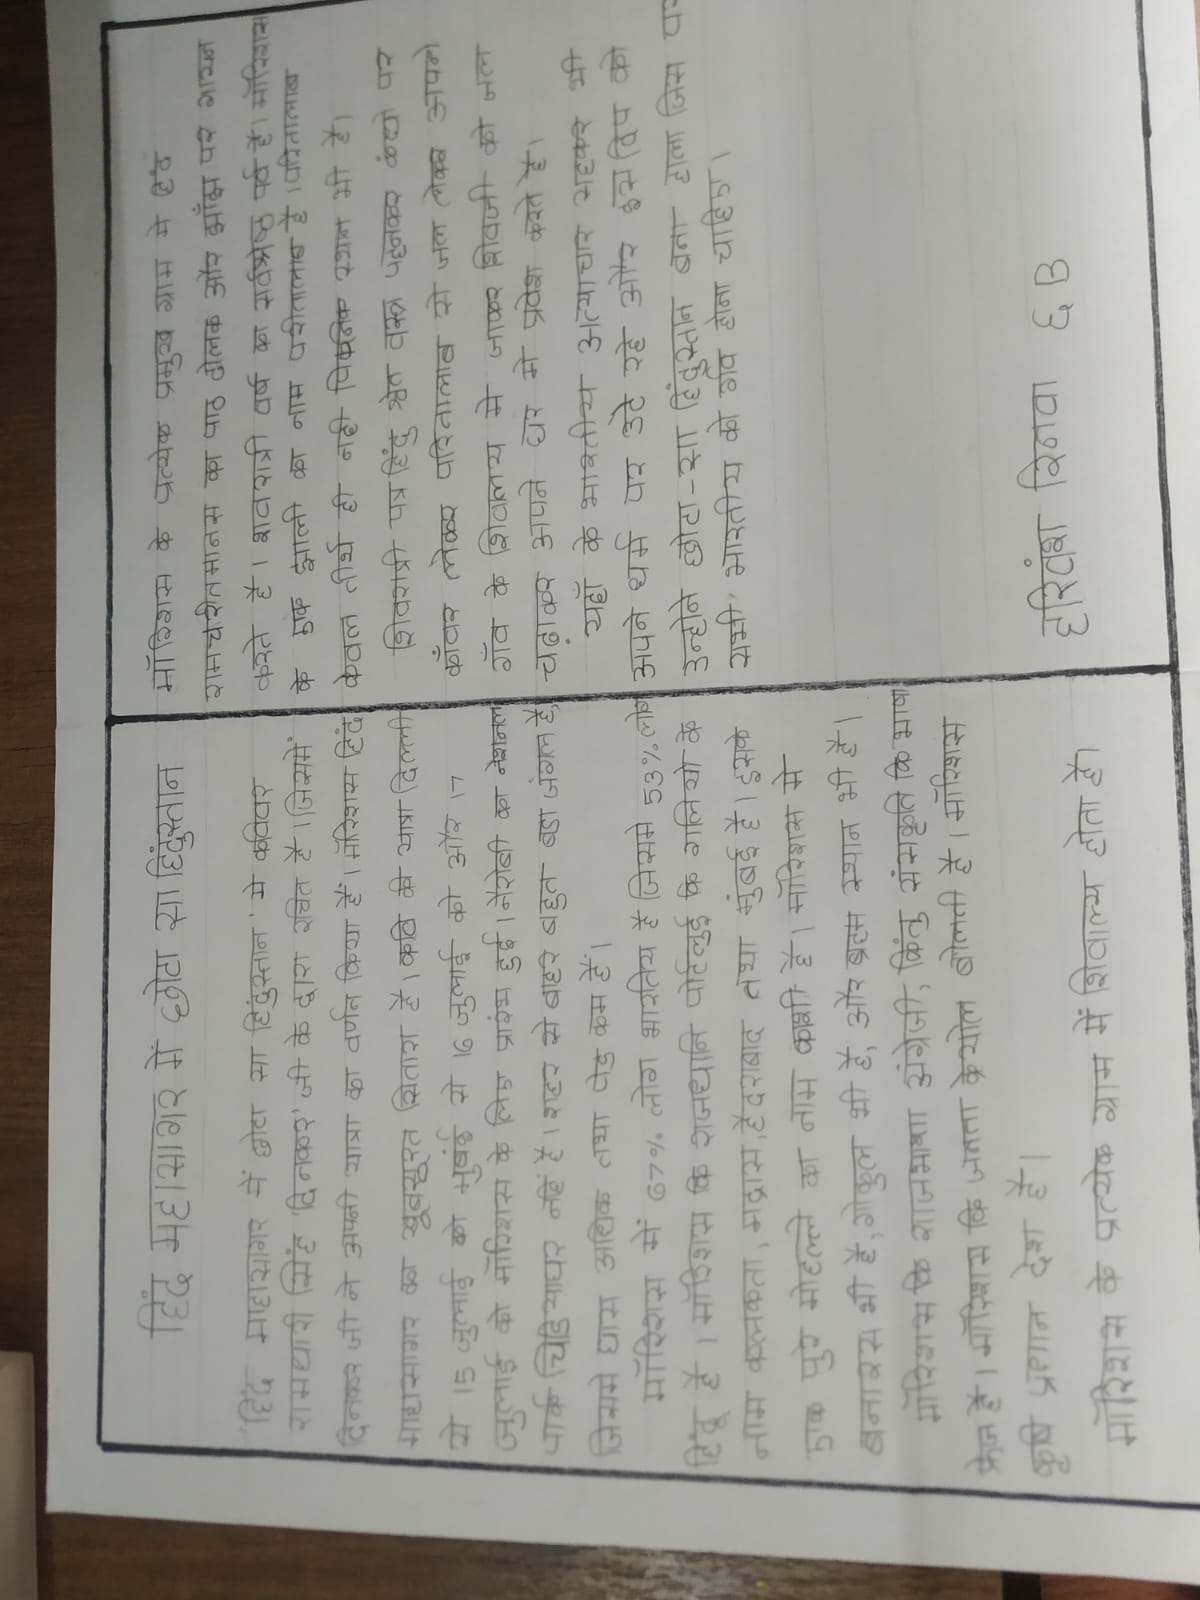 हिंद महासागर में छोटा सा हिंदुस्तान
'हिंद माहासागर में छोटा सा हिंदुस्तान' मे कविवर
रामधारी सिंह 'दिनकर' जी के द्वारा रचित है। जिसमें
दिनकर जी ने अपनी यात्रा का वर्णन किया हैं। मॉरिशस हिंद
माहासागर का खूबसूरत सितारा है। कवि की यात्रा दिल्ली
से 15 जुलाई को मुबंई से 16 जुलाई को और 17
जुलाई को मॉरिशस के लिए प्रारंभ हुई। नैरोबी का नेशनल
पार्क चिडियाघर नहिं है। शहर से बाहर बहुत बडा जंगल है,
जिनसे घास अधिक तथा पेड कम हैं।
मॉरिशस में 67% लोग भारतिय हैं जिसमे 53% लोग
हिंदू है। मॉरिशस कि राजधानि पोर्टलुई कि गलियो के
नाम कलकता, मद्रास, हैदराबाद तथा मुंबई है। इसके
एक पुरे मोहल्ले का नाम काशी है। मॉरिशस मे
बनारस भी है, गोकुल भी है, और ब्रहम स्थान भी है।
मॉरिशस कि राजभाषा अंग्रेजी, किंतु संस्कृति कि भाषा
फ्रेंज है। मॉरिशस कि जनता क्रेयोल बोलती है। मॉरिशस
कृषि प्रधान देश है।
मॉरिशस के प्रत्येक ग्राम में शिवाल्य होता है।
मॉरिशस के प्रत्येक प्रमुख ग्राम मे हिंदू
रामचरीतमानस का पाठ ढोलक और झाँझ पर गायन
करते है। शवरात्री वर्ष का सर्वश्रेष्ठ पर्व है। मॉरिशस
के एक झाली का नाम परीतालाब है। परितालाब
केवल तीर्थ ही नही पिकनिक स्थान भी है।
शिवरात्री पत्र हिंदु श्वेत वस्त्र पहनकर कंधो पर
काँवर लेकर परितालाब से जल लेकर आपने
गाँव के शिवलाय मे जाकर शिवजी को जल
चढ़ाकर आपने घर मे प्रवेश करते है।
यहाँ के भारतीय अत्याचार सहकर भी
अपने धर्म पर डटे रहे और इस द्विप को
उन्होने छोटा-सा हिंदुस्तान बना डाला जिस पर
सभी भारतीय को गर्व होना चाहिए।
हरिवंश रिनवा 6B